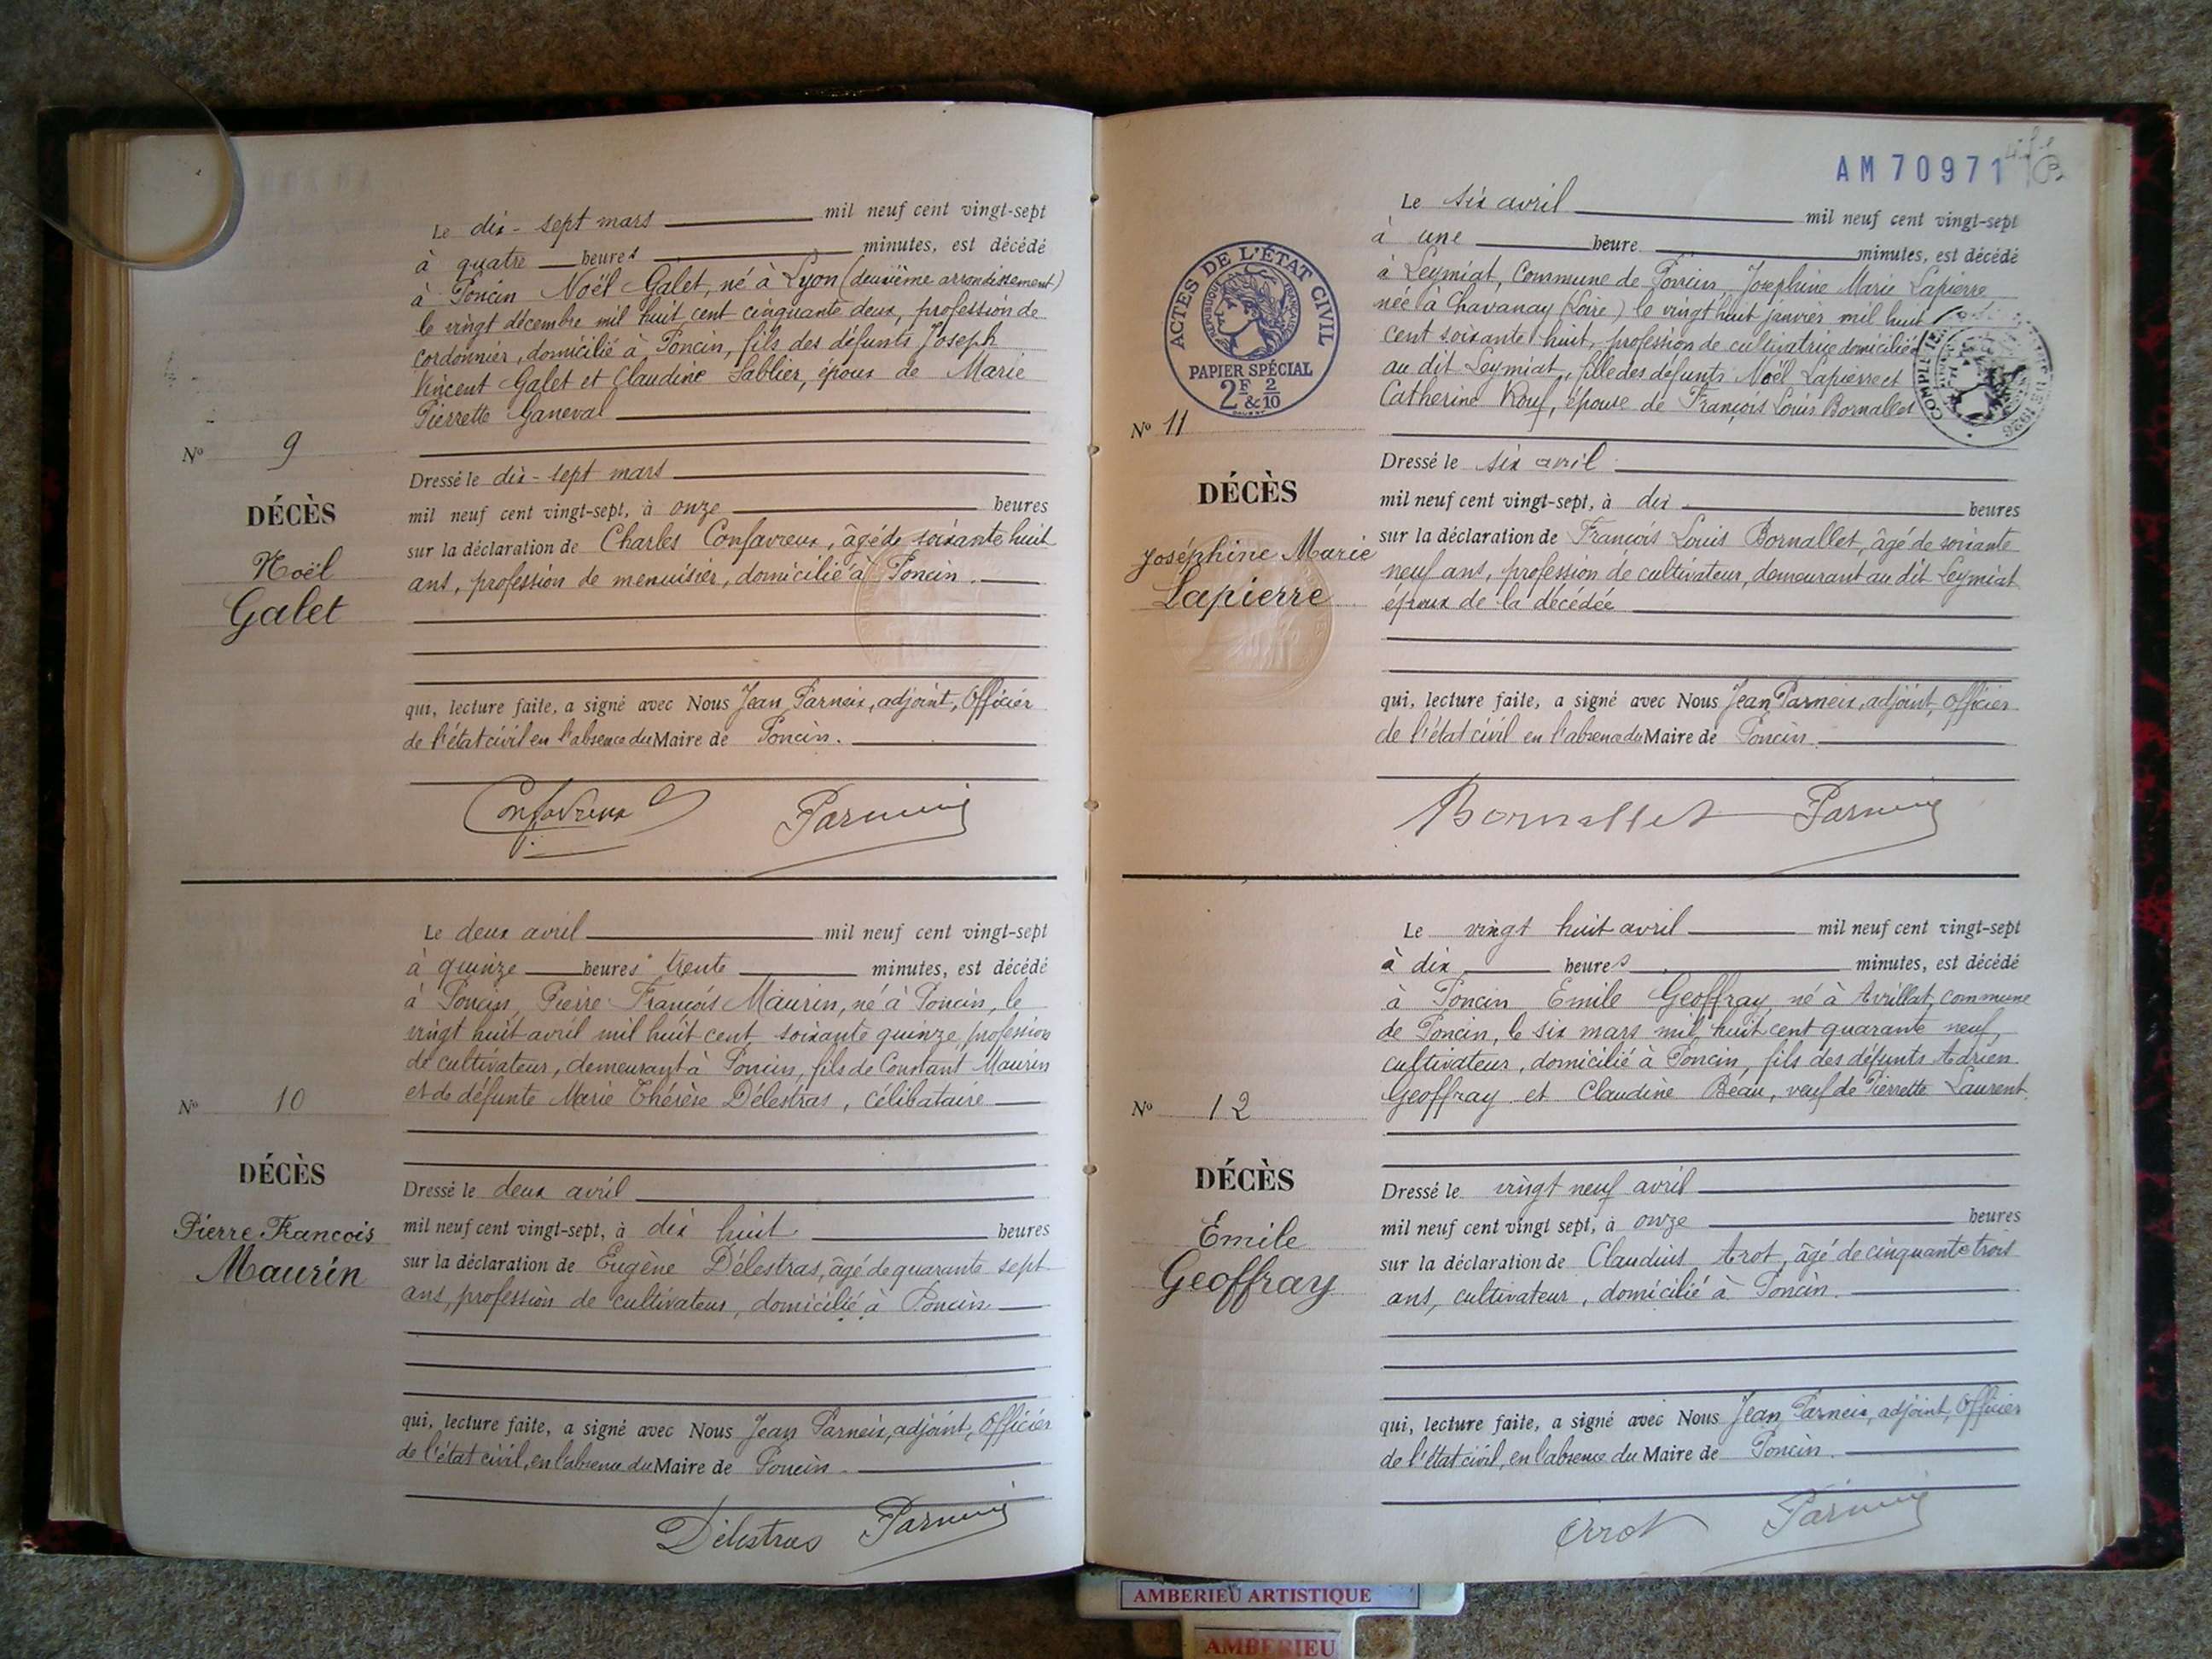 Le dix-sept mars mil neuf cent vingt-sept
à quatre heures minutes, est décédé
à Poncin Noël Galet, né à Lyon (deuxième arrondissement)
le vingt décembre mil huit cent cinquante deux, profession de
cordonnier, domicilié à Poncin, fils des défunts Joseph
Vincent Galet et Claudine Sablier, époux de Marie
Pierrette Ganeval
N° 9
DÉCÈS
Noël
Galet
Dressé le dix-sept mars
mil neuf cent vingt-sept, à onze heures
sur la déclaration de Charles Confavreux, âgé de soixante huit
ans, profession de menuisier, domicilié à Poncin.
qui, lecture faite, a signé avec Nous Jean Parneix, adjoint, Officier
de l'état civil en l'absence du Maire de Poncin.
Confavreux Parneix
Le deux avril mil neuf cent vingt-sept
à quinze heures trente minutes, est décédé
à Poncin, Pierre François Maurin, né à Poncin, le
vingt huit avril mil huit cent soixante quinze, profession
de cultivateur, demeurant à Poncin, fils de Constant Maurin
et de défunte Marie Thérèse Délestras, célibataire
N° 10
DÉCÈS
Pierre François
Maurin
Dressé le deux avril
mil neuf cent vingt-sept, à dix huit heures
sur la déclaration de Eugène Délestras, âgé de quarante sept
ans, profession de cultivateur, domicilié à Poncin
qui, lecture faite, a signé avec Nous Jean Parneix, adjoint, Officier
de l'état civil, en l'absence du Maire de Poncin.
Délestras Parneix
AM 70971
Le six avril mil neuf cent vingt-sept
à une heure minutes, est décédé
à Leymiat, Commune de Poncin, Joséphine Marie Lapierre
née à Chavanay (Loire) le vingt huit janvier mil huit
cent soixante huit, profession de cultivatrice domiciliée
au dit Leymiat, fille des défunts Noël Lapierre et
Catherine Rouf, épouse de François Louis Bornallet
ACTES DE L'ÉTAT CIVIL
RÉPUBLIQUE FRANÇAISE
PAPIER SPÉCIAL
2F & 2/10
N° 11
DÉCÈS
Joséphine Marie
Lapierre
Dressé le six avril
mil neuf cent vingt-sept, à dix heures
sur la déclaration de François Louis Bornallet, âgé de soixante
neuf ans, profession de cultivateur, demeurant au dit Leymiat
époux de la décédée
qui, lecture faite, a signé avec Nous Jean Parneix, adjoint, Officier
de l'état civil en l'absence du Maire de Poncin
Bornallet Parneix
Le vingt huit avril mil neuf cent vingt-sept
à dix heures minutes, est décédé
à Poncin Emile Geoffray, né à Avrillat, commune
de Poncin, le six mars mil huit cent quarante neuf,
cultivateur, domicilié à Poncin, fils des défunts Adrien
Geoffray et Claudine Beau, veuf de Pierrette Laurent.
N° 12
DÉCÈS
Emile
Geoffray
Dressé le vingt neuf avril
mil neuf cent vingt sept, à onze heures
sur la déclaration de Claudius Arot, âgé de cinquante trois
ans, cultivateur, domicilié à Poncin.
qui, lecture faite, a signé avec Nous Jean Parneix, adjoint, Officier
de l'état civil, en l'absence du Maire de Poncin.
Parneix
AMBERIEU ARTISTIQUE
AMBERIEU